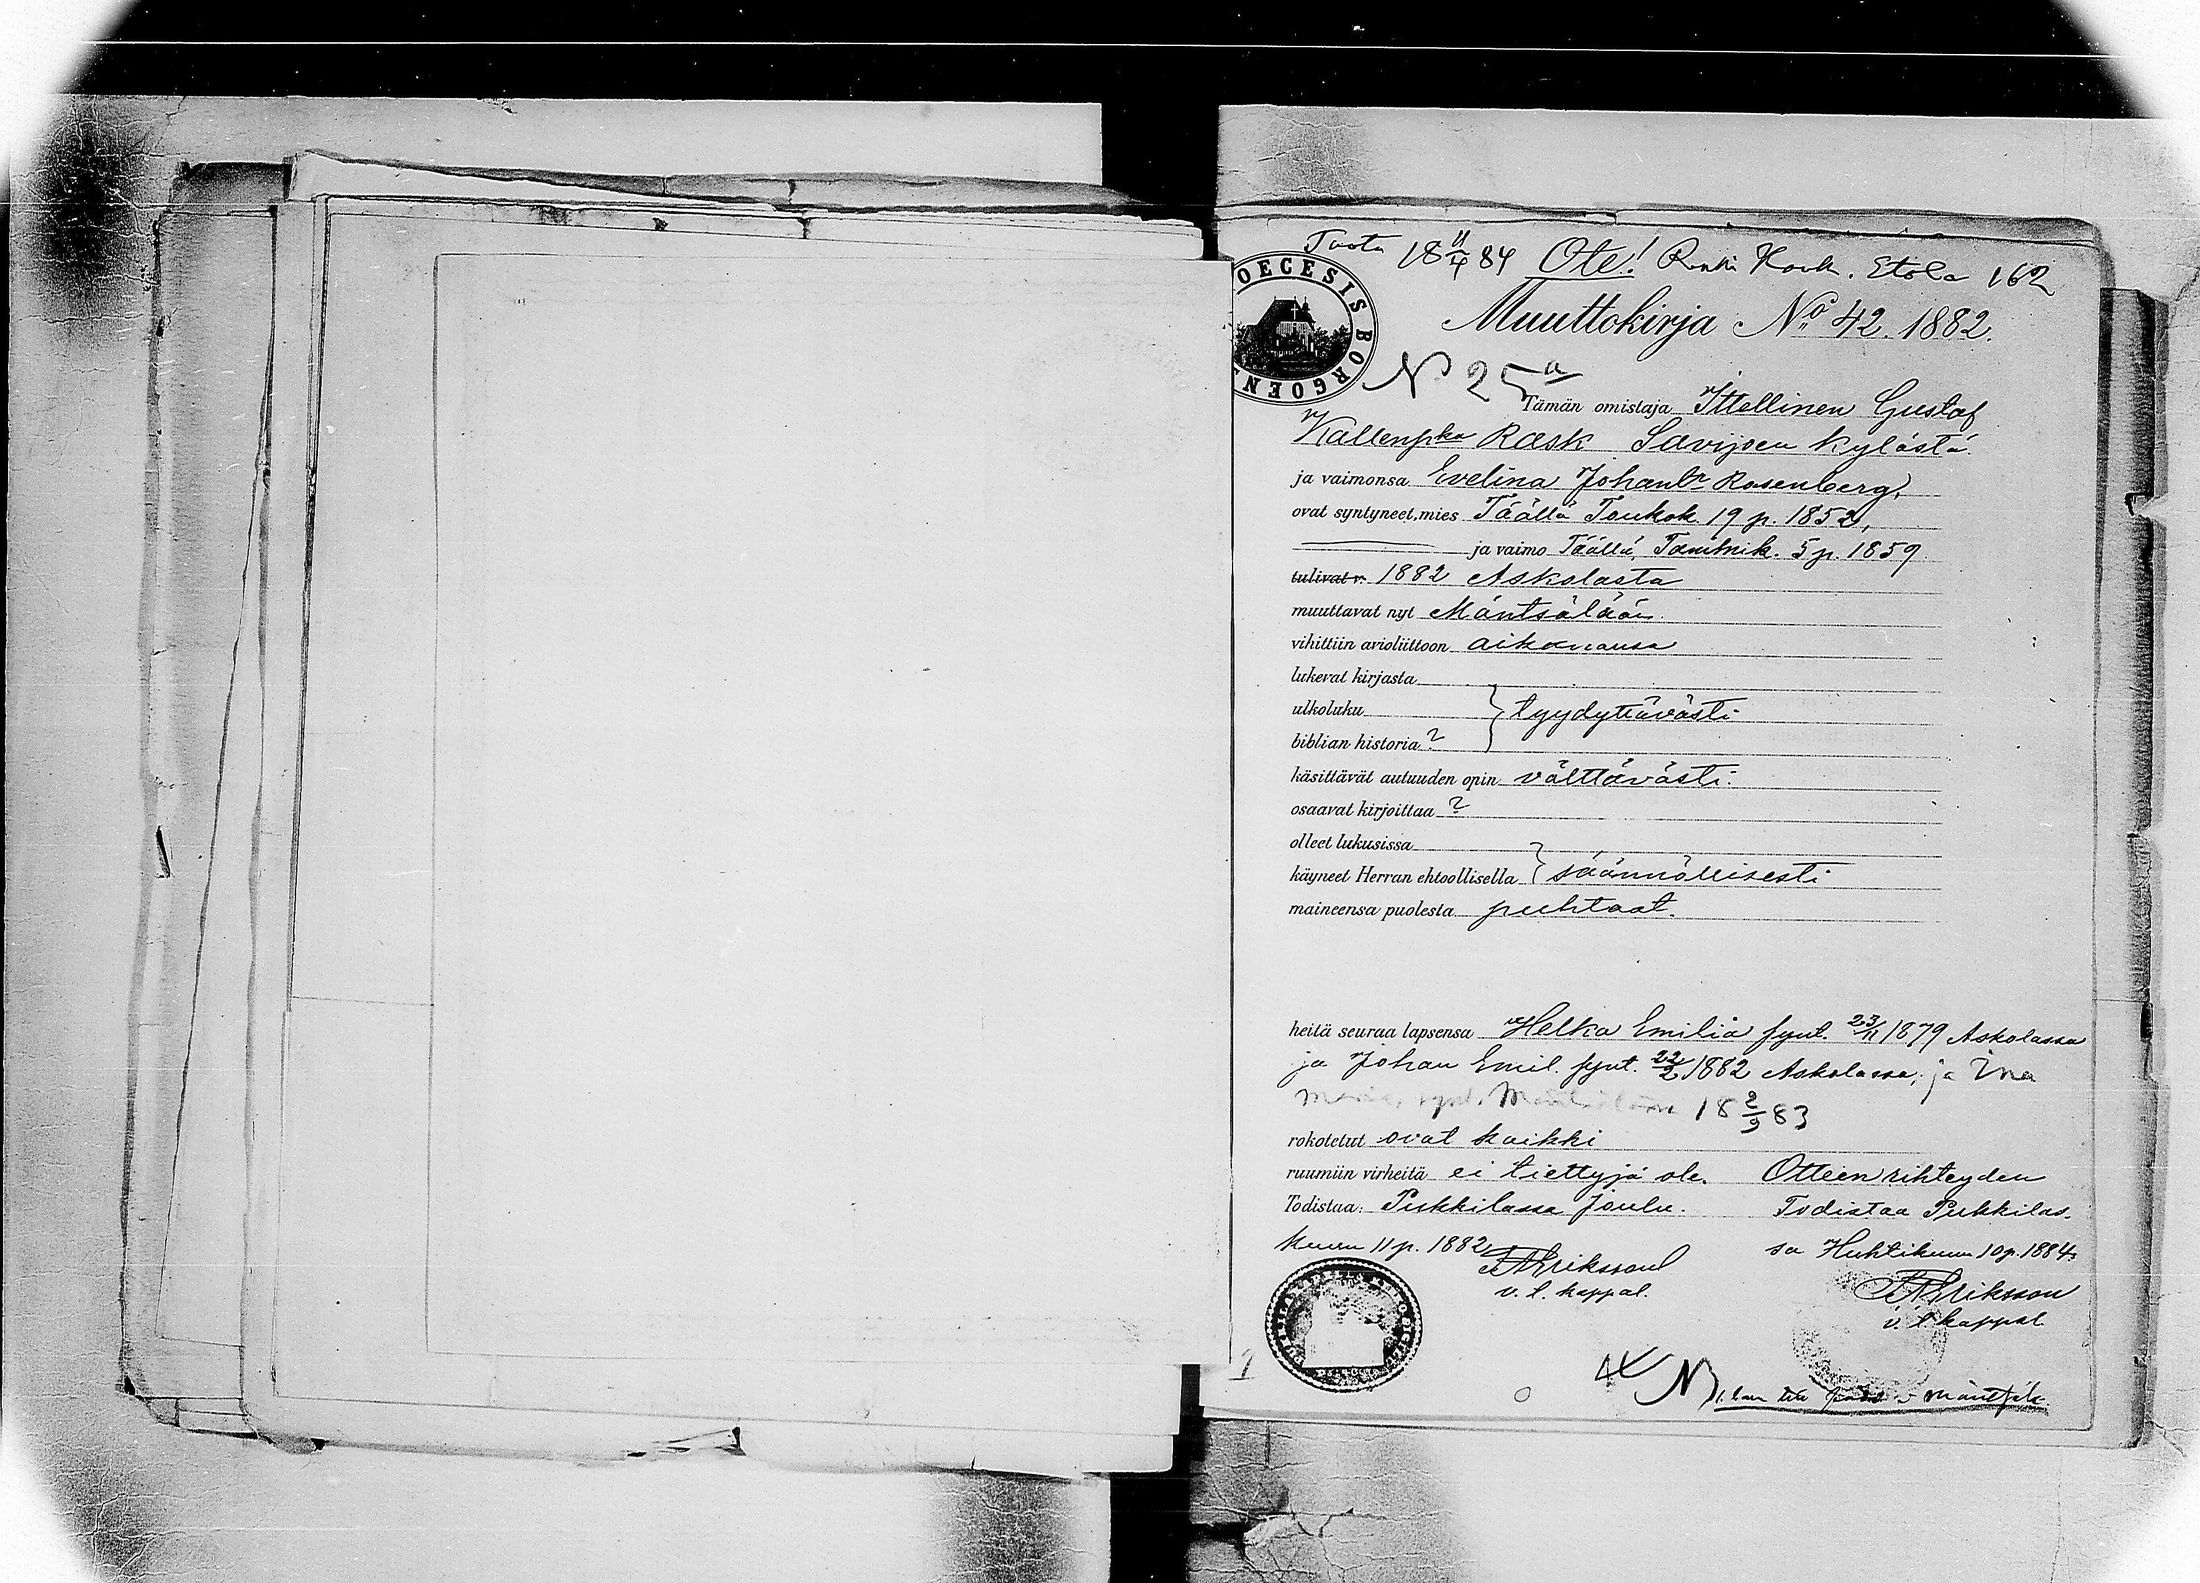 Tuotu 18 11/4 84 Ote! Renki Kork. Etola 162
DOECESIS BORGOEN
Muuttokirja No 42. 1882.
No 25 a
Tämän omistaja Ittellinen Gustaf
Kallenpka Rask Savijoen kylästä
ja vaimonsa Evelina Johantr Rosenberg,
ovat syntyneet, mies Täällä Toukok. 19 p. 1852,
ja vaimo Täällä, Tammik. 5 p. 1859
tulivat v. 1882 Askolasta
muuttavat nyt Mäntsälään.
vihittiin avioliittoon aikanansa
lukevat kirjasta
ulkoluku tyydyttävästi
biblian historia ?
käsittävät autuuden opin välttävästi.
osaavat kirjoittaa ?
olleet lukusissa
käyneet Herran ehtoollisella säännöllisesti
maineensa puolesta puhtaat.
heitä seuraa lapsensa Helka Emilia synt. 23/11 1879 Askolassa
ja Johan Emil. synt. 22/2 1882 Askolassa, ja Ina
Maria, synt. Mäntsälässä 18 2/9 83
rokotetut ovat kaikki
ruumiin virheitä ei tiettyjä ole.
Todistaa: Pukkilassa Joulu.
kuun 11 p. 1882
F A Eriksson
v. t. kappal.
Otteen rihteyden
Todistaa Pukkilas.
sa Huhtikuun 10 p. 1884
F A Eriksson
v. t. kappal